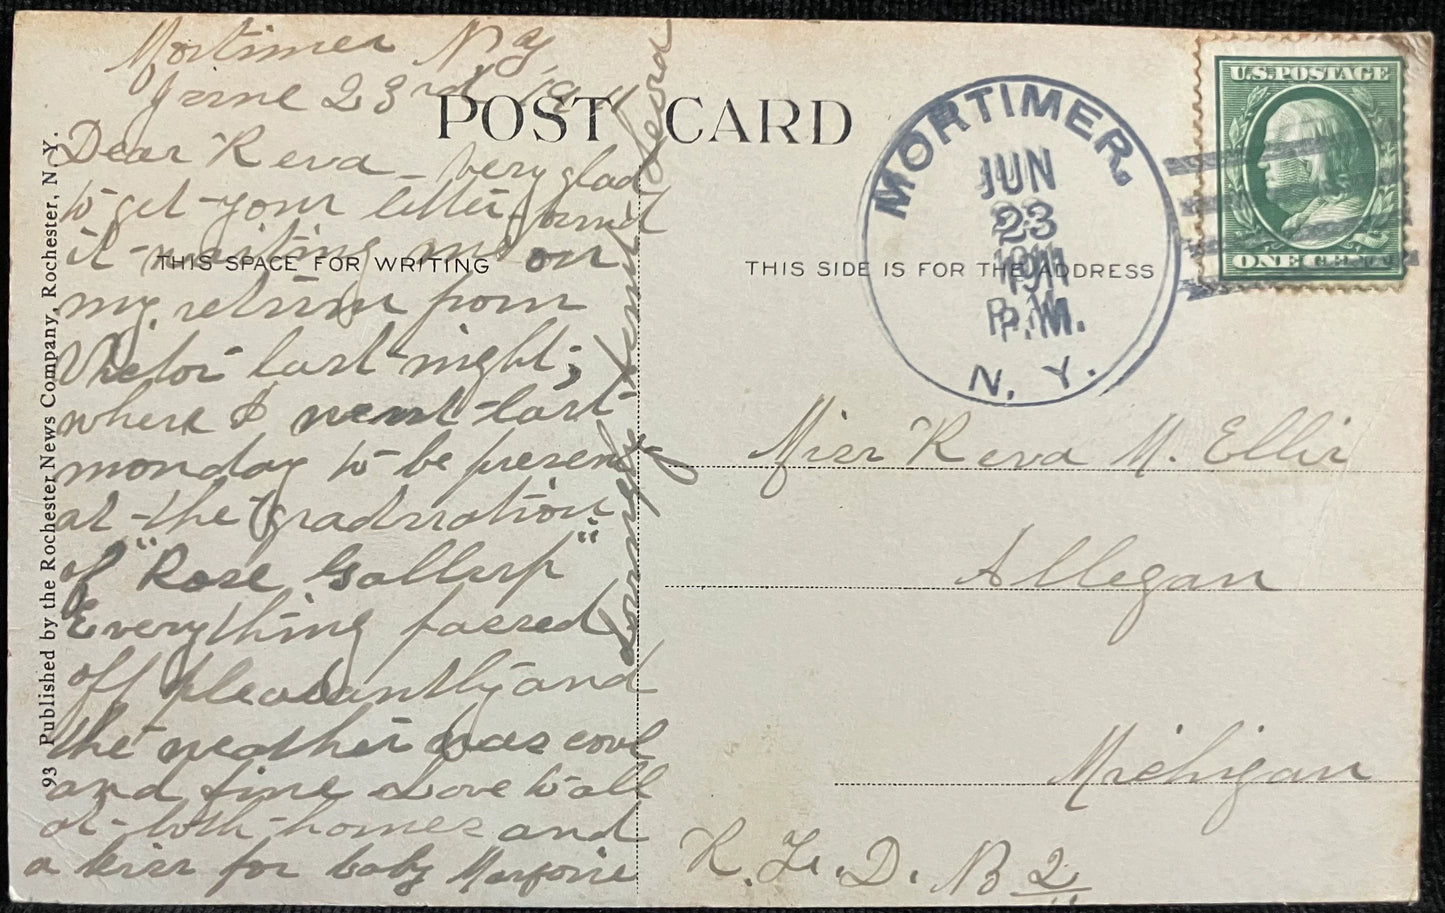 Mortimer N.Y.
June 23rd, 1911
POST CARD
Dear Reva - very glad
to get your letter, found
it waiting me on
THIS SPACE FOR WRITING
my return from
Victor last night;
where I went last
monday to be present
at the Graduation
of "Rose Gallup"
Everything passed
off pleasantly and
the weather was cool
and fine Love to all
at both homes and
a kiss for baby Marjorie
93 Published by the Rochester News Company, Rochester, N. Y.
MORTIMER,
JUN
23
1911
P.M.
N. Y.
U.S. POSTAGE
ONE CENT
THIS SIDE IS FOR THE ADDRESS
Miss Reva M. Ellis
Allegan
Michigan
R. F. D. No 2